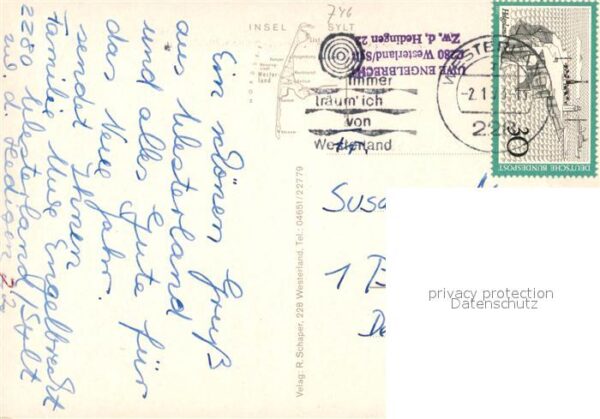 Ein schönen Gruß
aus Westerland
und alles Gute für
das Neue Jahr.
sendet Ihnen
Familie Uwe Engelbrecht
2280 Westerland/Sylt
zw. d. Hedigen 22
746
INSEL SYLT
Wester
land
UWE ENGELBRECHT
2280 Westerland/Sylt
Zw. d. Hedingen 22
Immer
träum' ich
von
Westerland
WESTERLAND
-2.1.
228
30
DEUTSCHE BUNDESPOST
Verlag: R. Schaper, 228 Westerland, Tel.: 04651/22779
Susa
1 B
De
privacy protection
Datenschutz